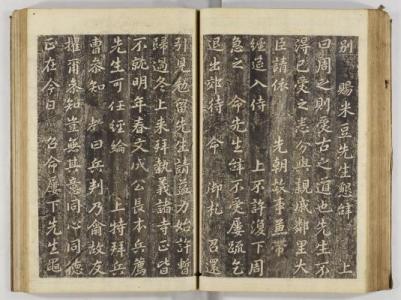 別 賜米豆先生懇辭 上
曰周之則受古之道也先生不
得已受之悉分與親戚鄰里大
臣請依 先朝故事 帶
經筵入侍 上不許復下周
急之 命先生辭不受屢疏乞
退出郊待 命 御札召還
引見勉留先生請益力始許暫
歸過冬上來拜執義諸寺正皆
不就明年春文成公長本兵薦
先生可任經綸 上特拜兵
曹參知 教曰兵判乃爾故友
擢爾參知豈無其意同心同德
正在今日 召命屢下先生黽